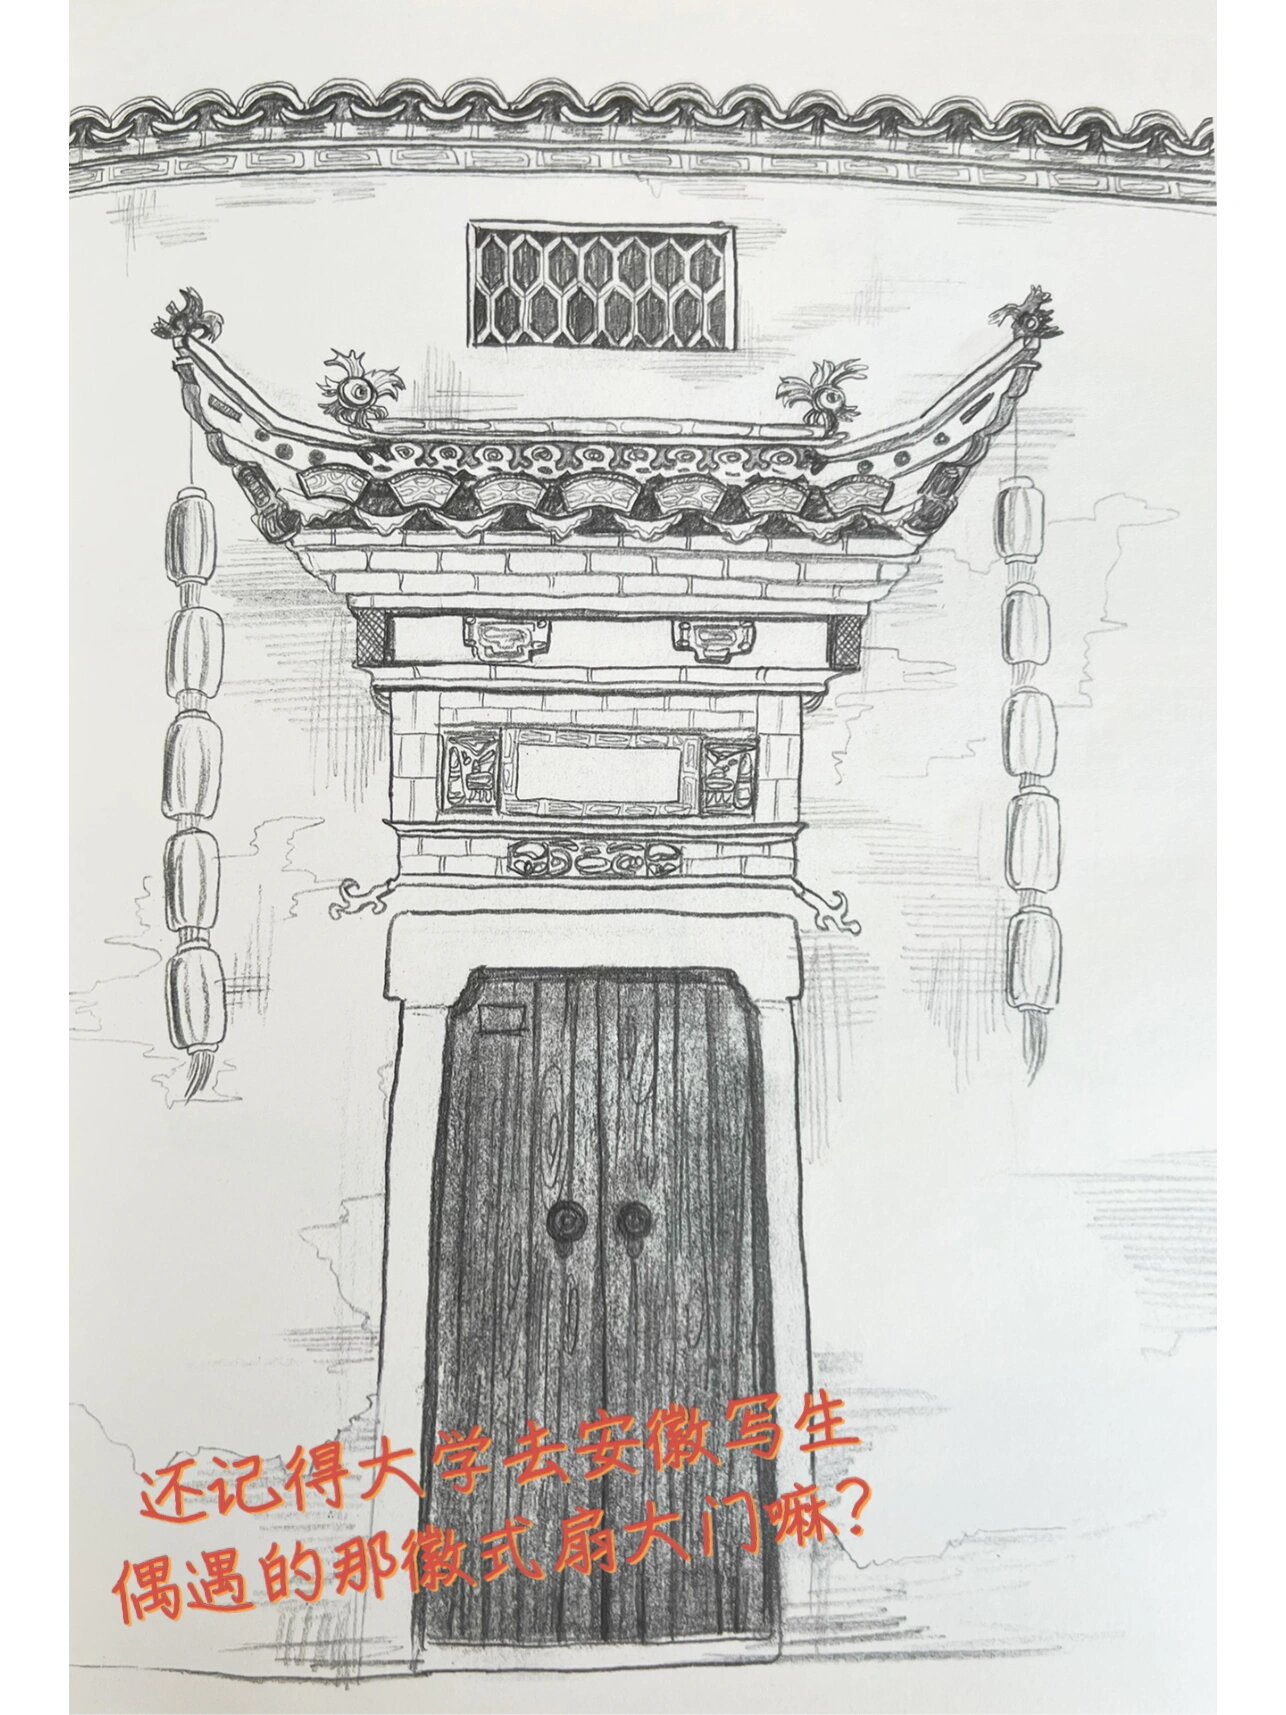 还记得大学去安徽写生
偶遇的那徽式扇大门嘛？